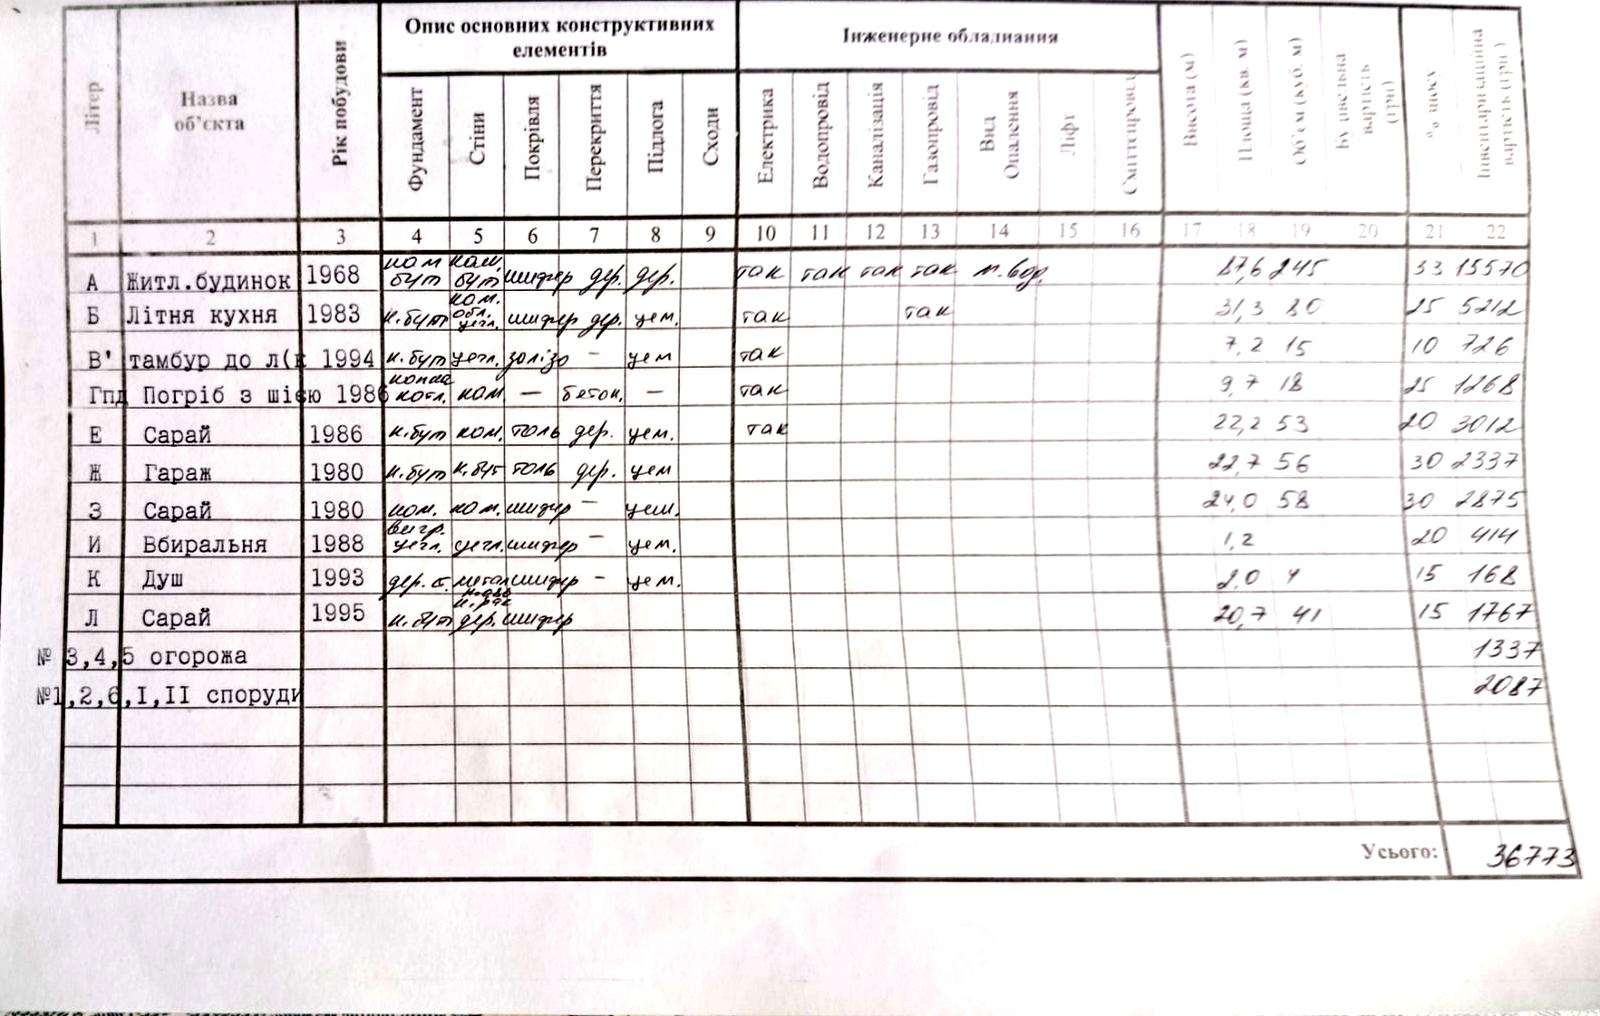 Літер Назва об'єкта Рік побудови Опис основних конструктивних елементів Інженерне обладнання Висота (м) Площа (кв. м) Об'єм (куб. м) Будівельна вартість (грн) % зносу Інвентаризаційна вартість (грн)
Фундамент Стіни Покрівля Перекриття Підлога Сходи Електрика Водопровід Каналізація Газопровід Вид Опалення Ліфт Сміттєпровід
1 2 3 4 5 6 7 8 9 10 11 12 13 14 15 16 17 18 19 20 21 22
А Житл.будинок 1968 кам бут кам. бут шифер дер. дер. так так так так п.вод. 87,6 245 33 15570
Б Літня кухня 1983 к.бут кам. обл. цегл. шифер дер. цем. так так 31,3 80 25 5212
В' тамбур до л(к 1994 к.бут цегл. залізо – цем так 7,2 15 10 726
Гпд Погріб з шією 1986 котл. кам – бетон. – так 9,7 18 25 1268
Е Сарай 1986 к.бут кам. толь дер. цем. так 22,2 53 20 3012
Ж Гараж 1980 к.бут к.бут толь дер. цем 22,7 56 30 2337
З Сарай 1980 кам. кам. шифер – цем. 24,0 58 30 2875
И Вбиральня 1988 вигр. цегл. цегл. шифер – цем. 1,2 20 414
К Душ 1993 дер. с. метал шифер – цем. 2.0 4 15 168
Л Сарай 1995 к.бут дер. шифер 20,7 41 15 1767
№ 3,4,5 огорожа 1337
№1,2,6,I,II споруди 2087
Усього: 36773